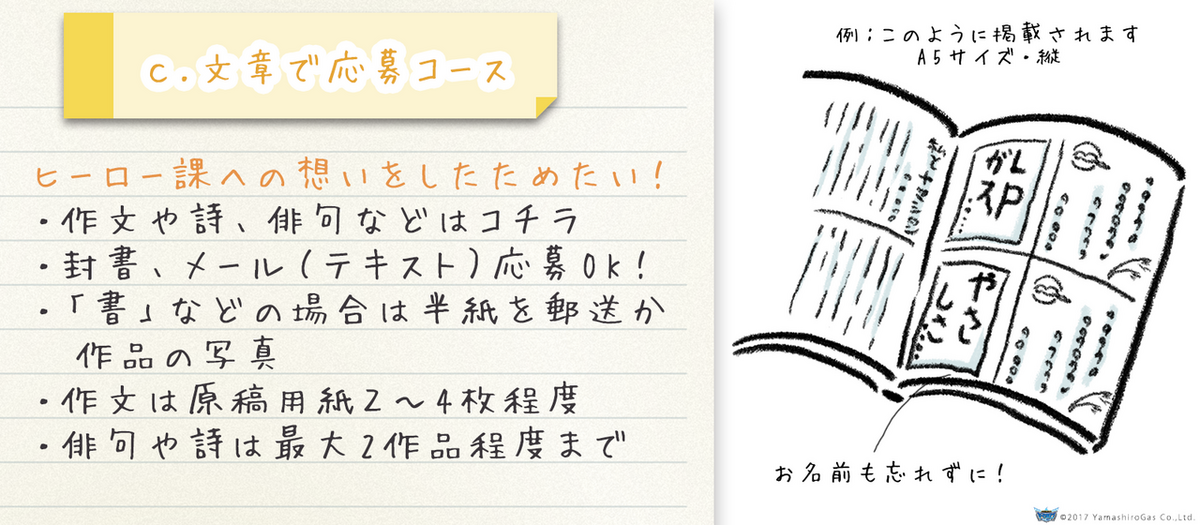 c.文章で応募コース
ヒーロー課への想いをしたためたい!
・作文や詩、俳句などはコチラ
・封書、メール(テキスト)応募Ok!
・「書」などの場合は半紙を郵送か
作品の写真
・作文は原稿用紙2〜4枚程度
・俳句や詩は最大2作品程度まで
例;このように掲載されます
A5サイズ・縦
LP
ガス
やさし
しさ
お名前も忘れずに!
©2017 YamashiroGas Co.,Ltd.